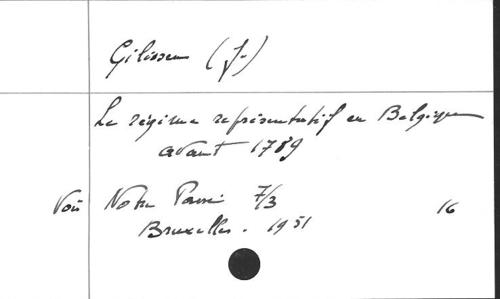 Gilissen (J.)
Le régime représentatif en Belgique
avant 1789
Voir Notre Passé 7/3 16
Bruxelles. 1951